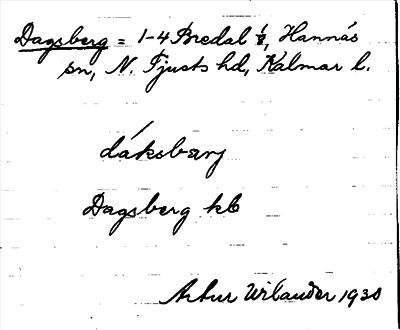 Dagsberg = 1-4 Bredal 1/8, Hannäs
sn, N. Tjusts hd, Kalmar l.
dáksbærj
Dagsberg kb
Artur Wilander 1930